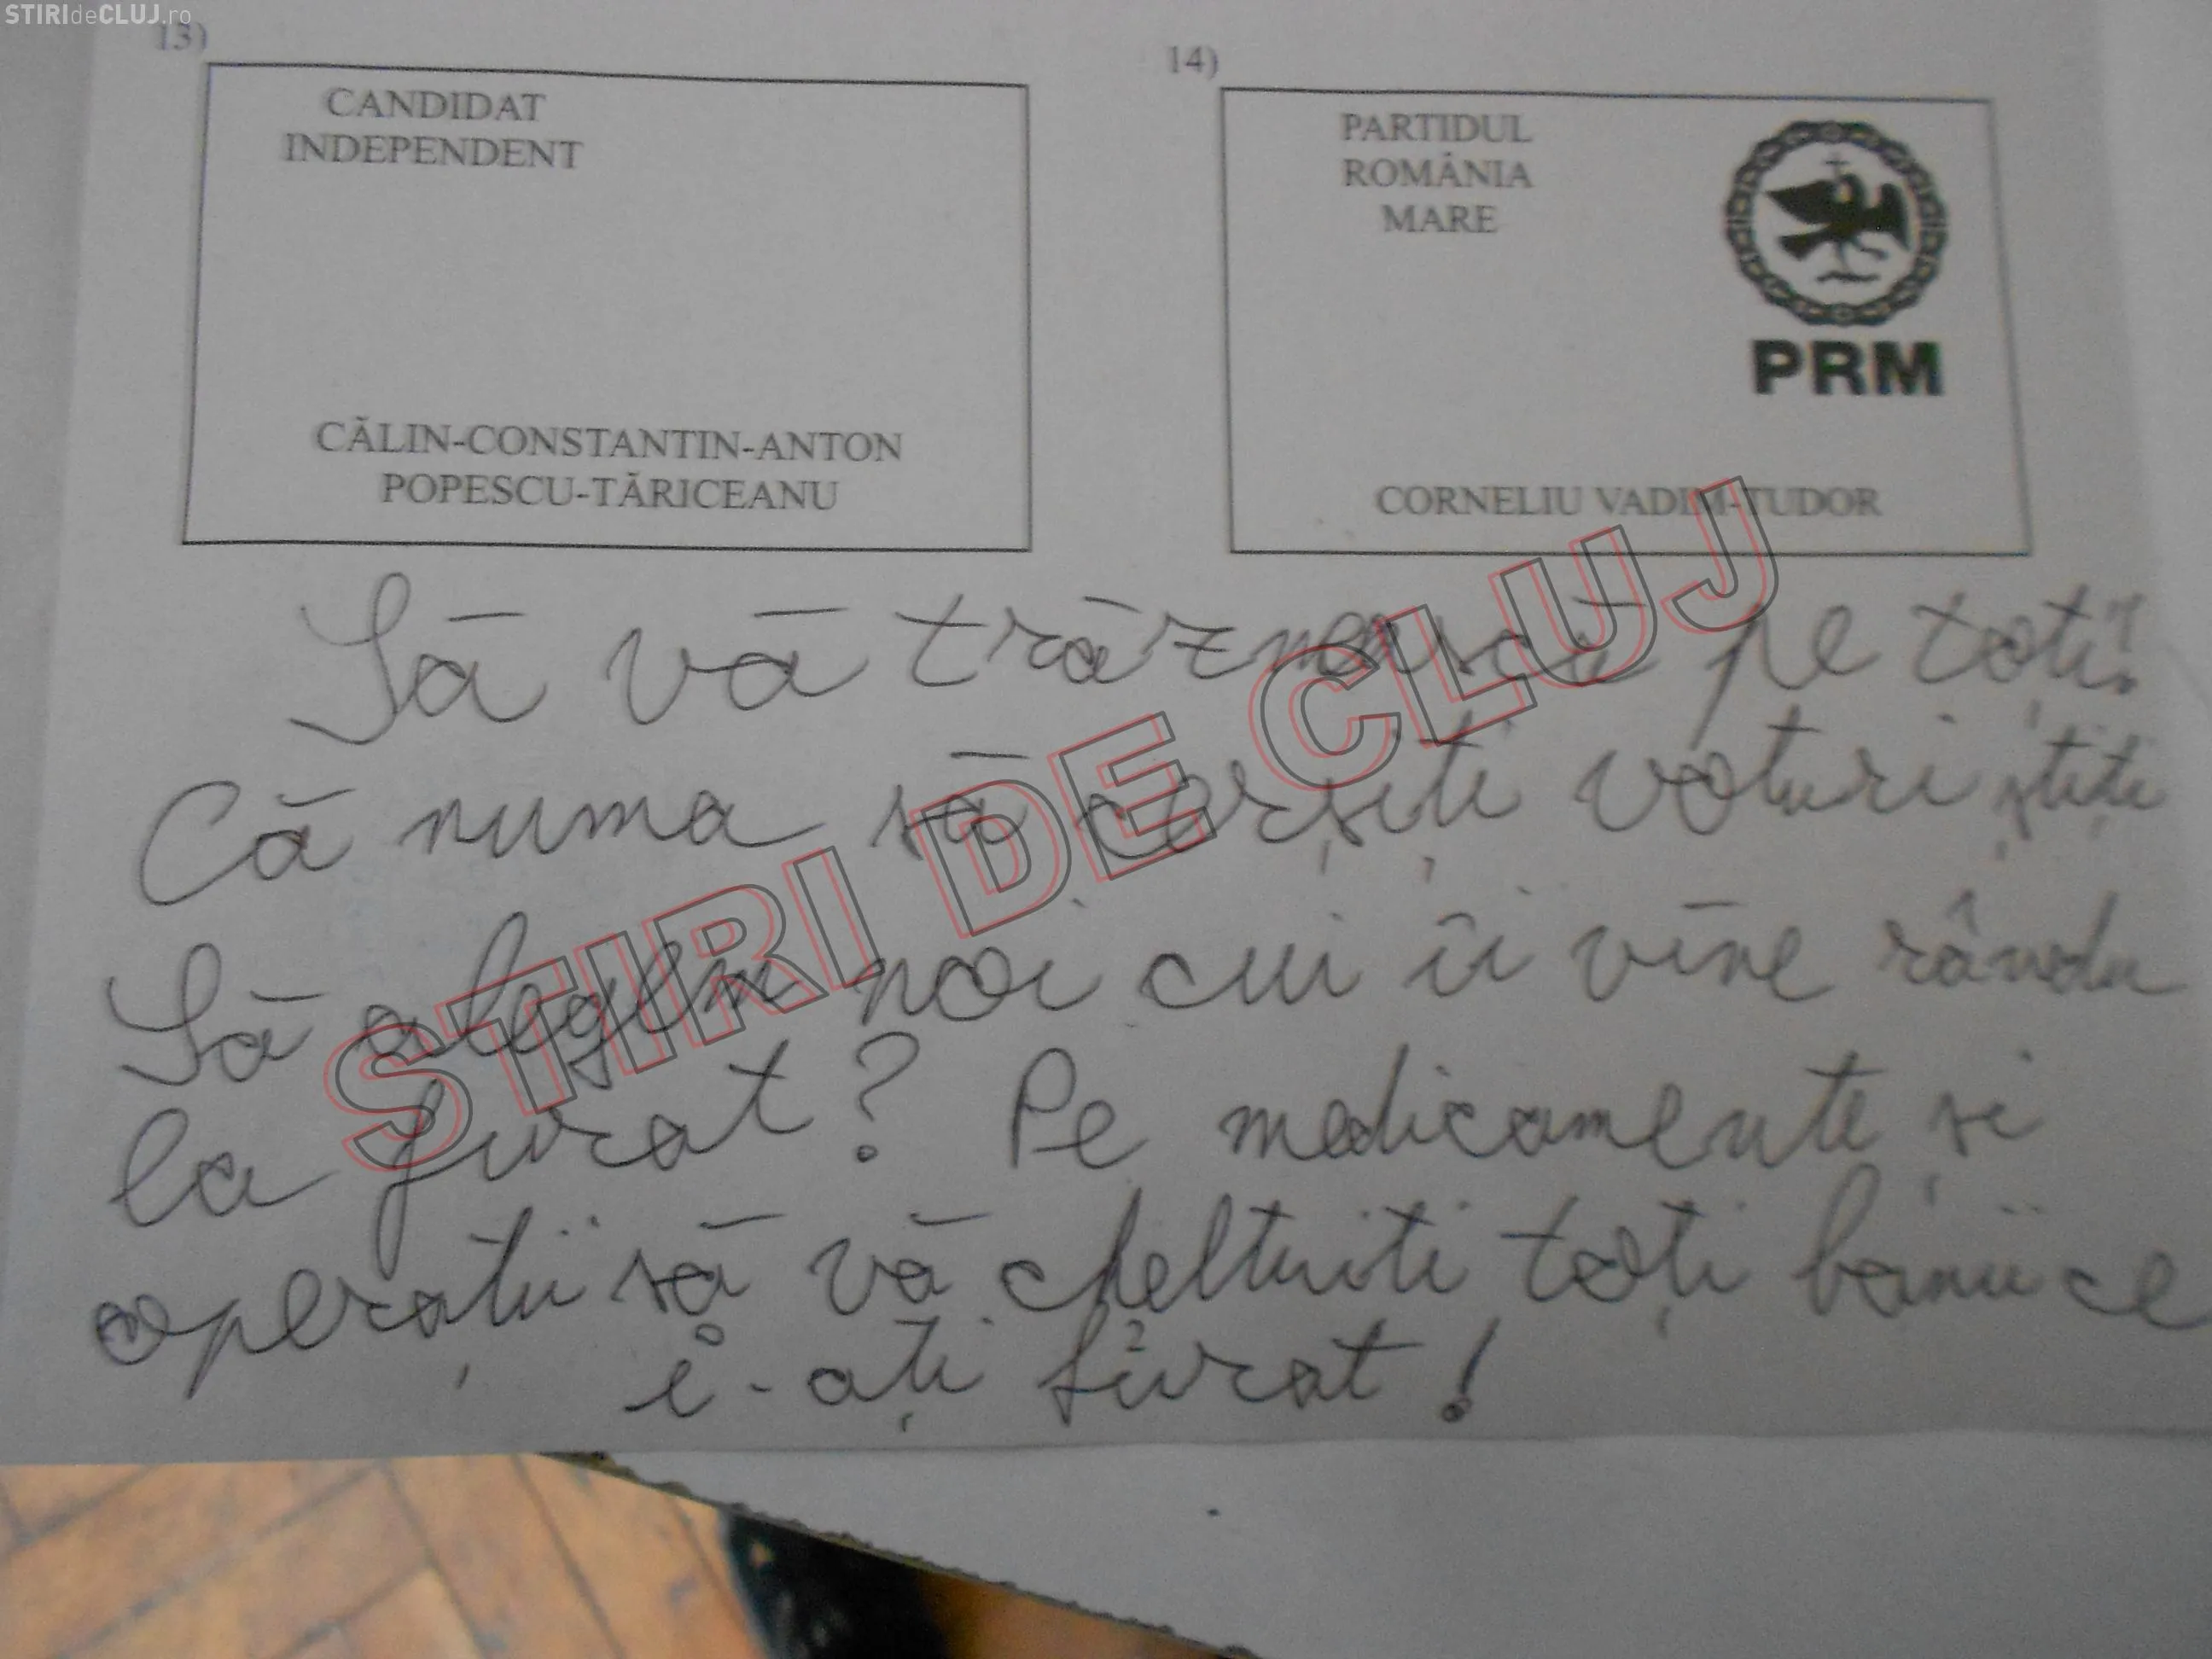 STIRIdeCLUJ.ro
13)
CANDIDAT
INDEPENDENT
CĂLIN-CONSTANTIN-ANTON
POPESCU-TĂRICEANU
14)
PARTIDUL
ROMÂNIA
MARE
PRM
CORNELIU VADIM-TUDOR
STIRI DE CLUJ
Să vă trăznească pe toți!
Că numa să cerșiți voturi știți
Să alegem noi cui îi vine rându
la furat? Pe medicamente și
operații să vă cheltuiti toți banii ce
i-ați furat!